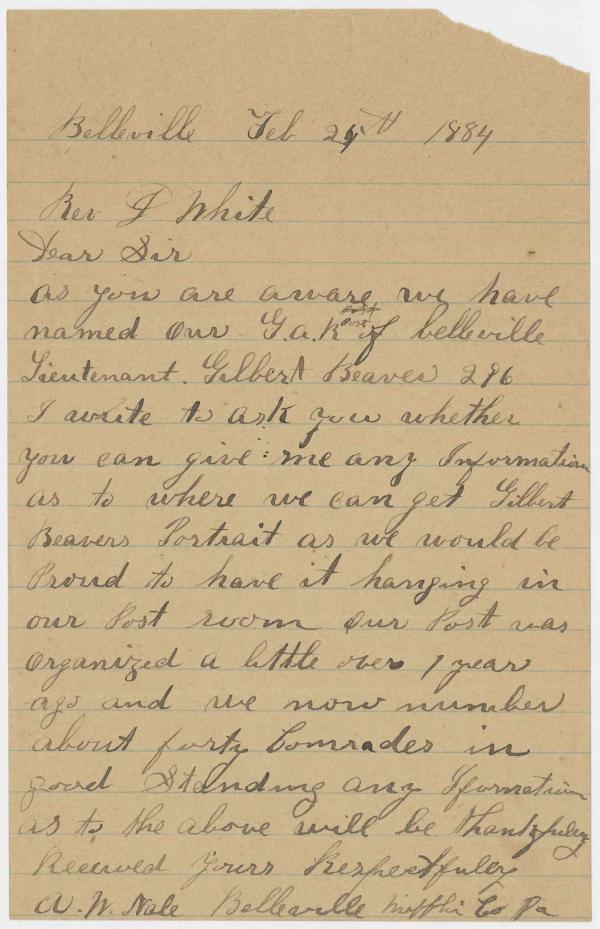 Belleville Feb 24th 1884
Rev J White
Dear Sir
as you are aware we have
Post
named our G.a.R Post of belleville
Lieutenant. Gilbert Beaver 296
I write to ask you whether
you can give me any Information
as to where we can get Gilbert
Beavers Portrait as we would be
Proud to have it hanging in
our Post room Our Post was
organized a little over 1 year
ago and we now number
about forty Comrades in
good Standing any Iformation
as to the above will be thankfuley
Received Yours Respectfuley
A. W. Nale Belleaville Mifflin Co Pa